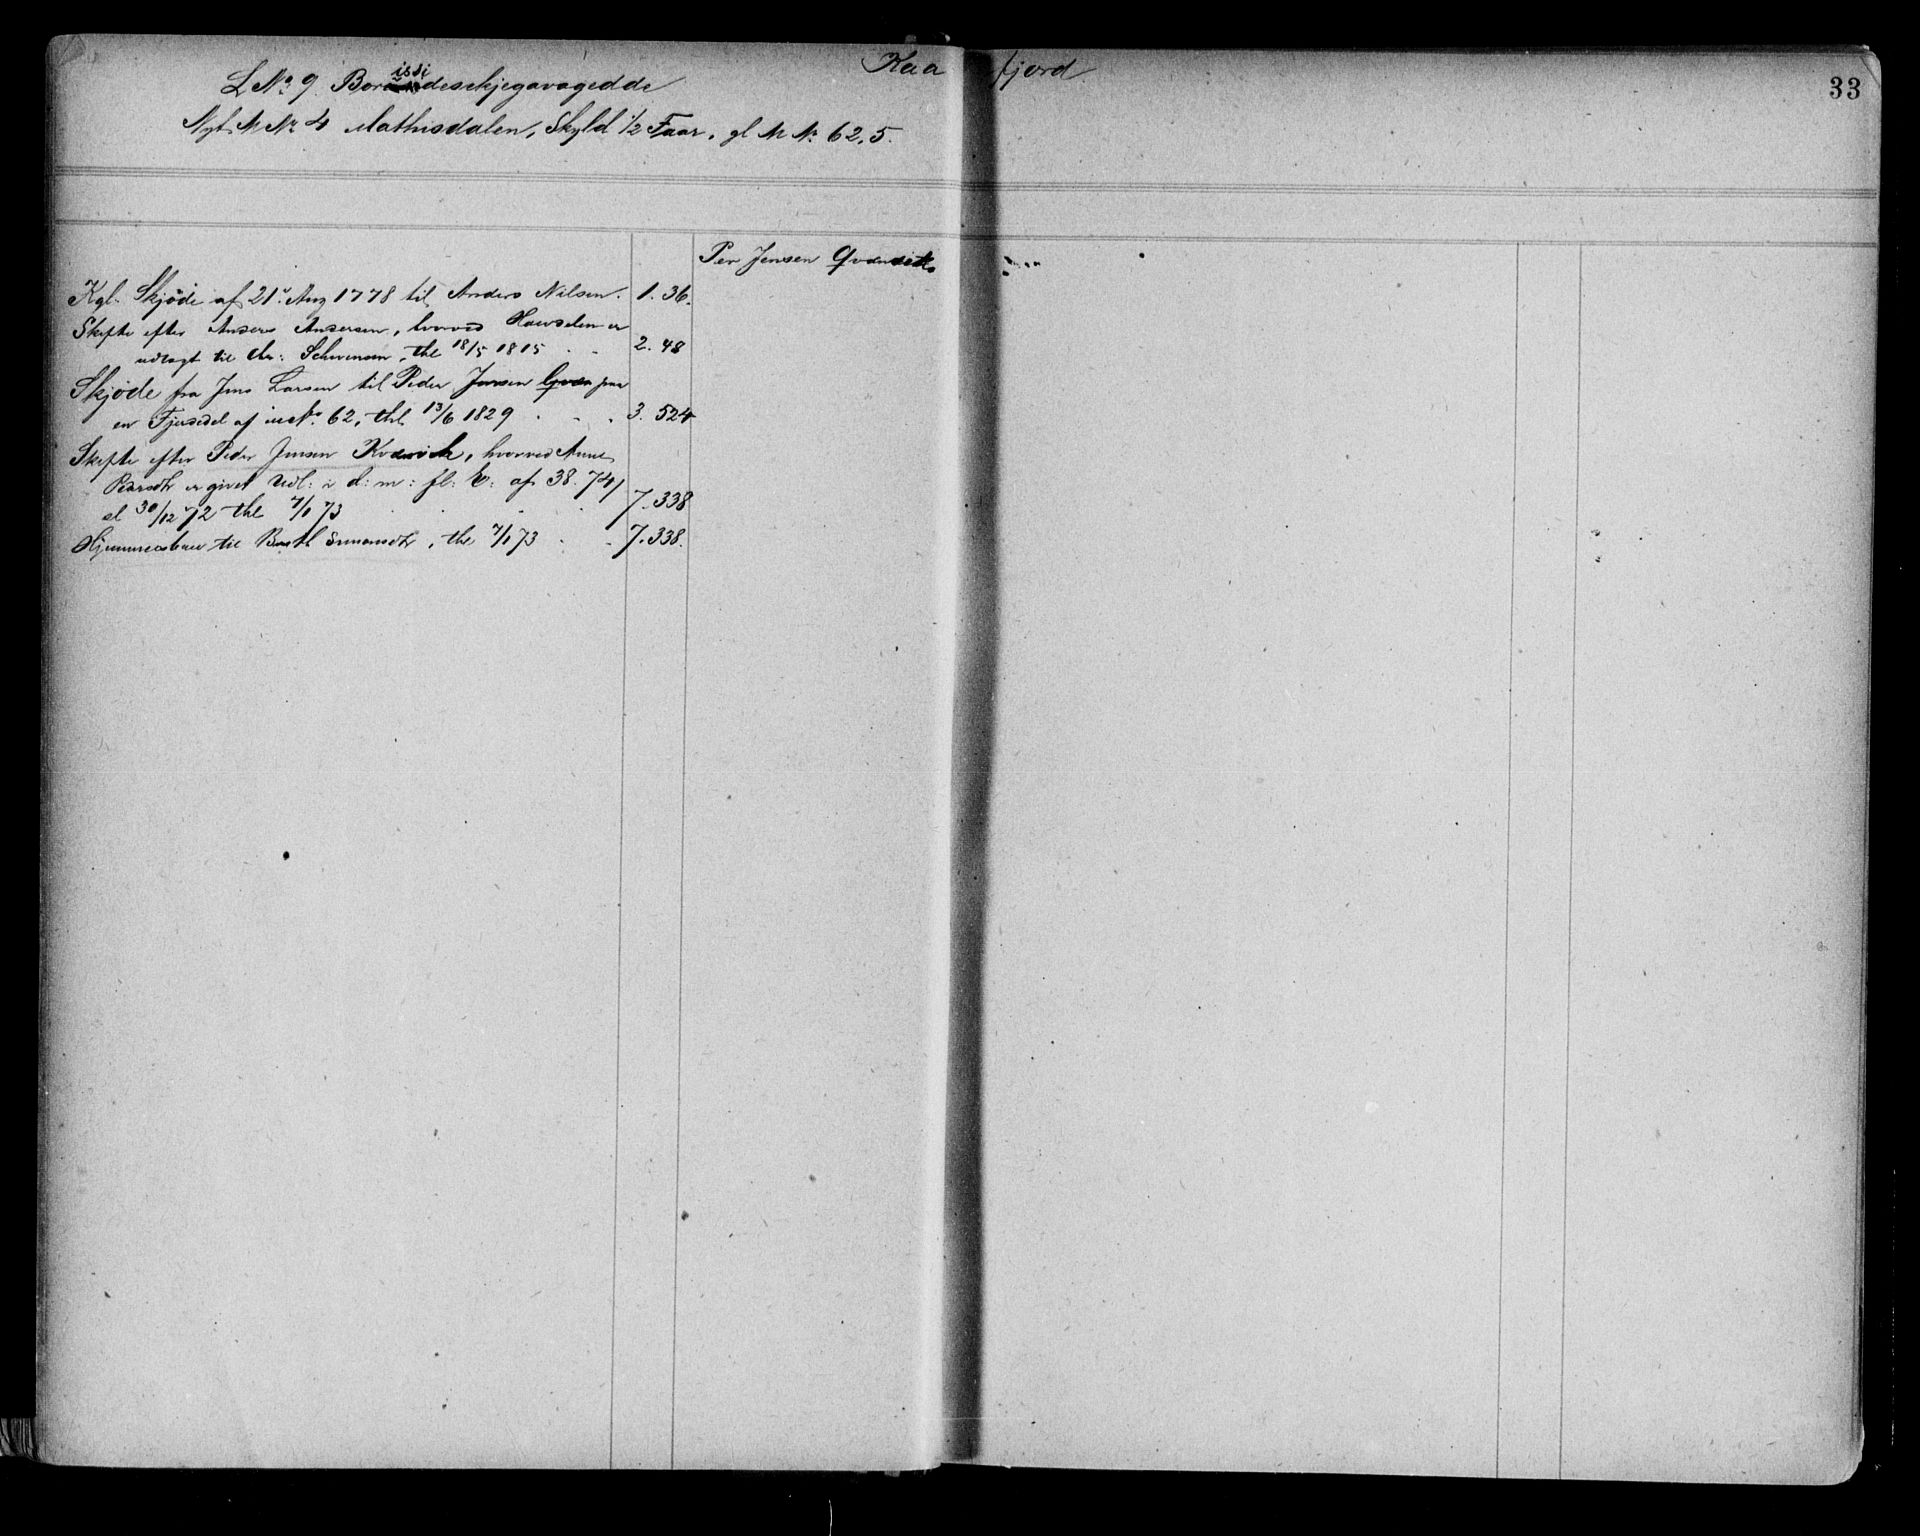 Kaa fjord
33
L No 9. Bor issi deschjegavagedde
Nyt M No 4 Mathisdalen, Skyld 1/2 Faar, gl M No 62,5.
Per Jensen
Kgl. Skjøde af 21. Aug 1778 til Anders Nilsen. 1. 36.
Skifte efter Anders Andersen, hvorved er
udlagt til Chr: Schwensen, thl 18/5 1815 . . 2. 48
Skjøde fra Jens Larsen til Peder Jensen paa
en Fjerdedel af No 62, thl 13/6 1829 . . . 3. 524
Skifte efter Peder Jensen, hvorved Anne
Persdtr er givet Udl: i d: m: fl: E: af 38. 741
sl 30/12 72 thl 7/1 73 7. 338
til Smonsdtr, thl 7/1 73 . . 7. 338.